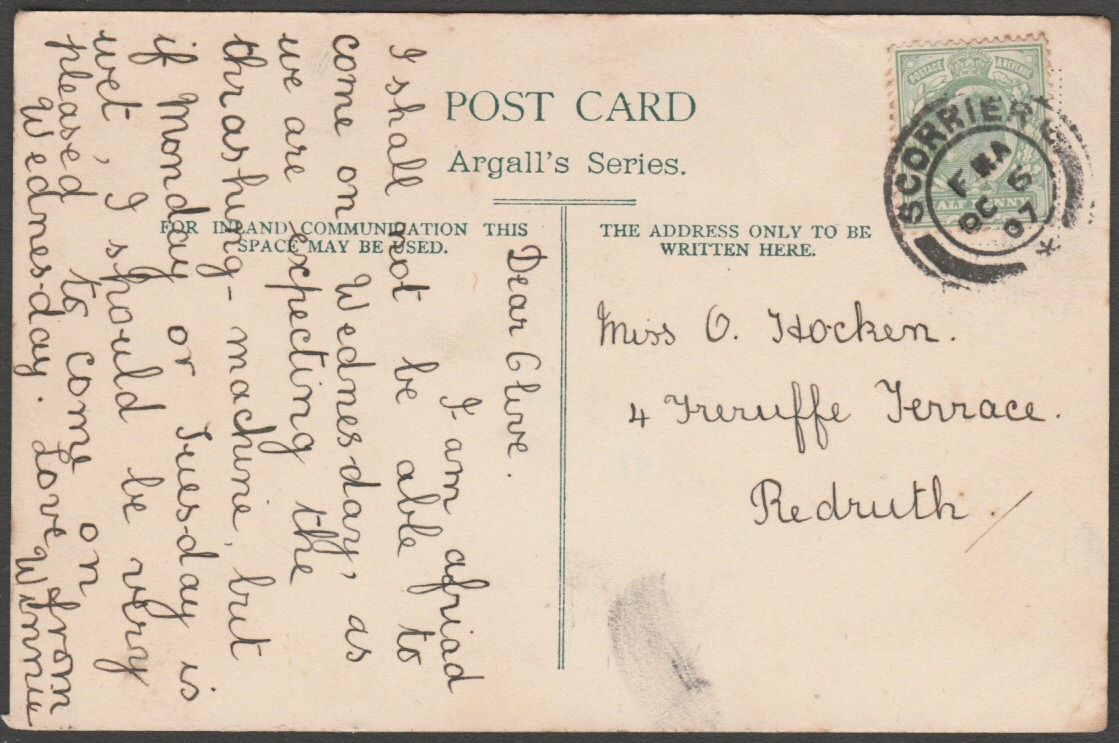 POST CARD
Argall's Series.
FOR INLAND COMMUNICATION THIS
SPACE MAY BE USED.
THE ADDRESS ONLY TO BE
WRITTEN HERE.
POSTAGE & REVENUE
HALF PENNY
SCORRIER
OC 6
07
Miss O. Hocken.
4 Treruffe Terrace.
Redruth.
Dear Olive.
I am afriad
I shall not be able to
come on Wednes-day, as
we are expecting the
thrashing-machine, but
if Monday or Tues-day is
wet, I should be very
pleased to come on
Wednes-day. Love from
Winnie